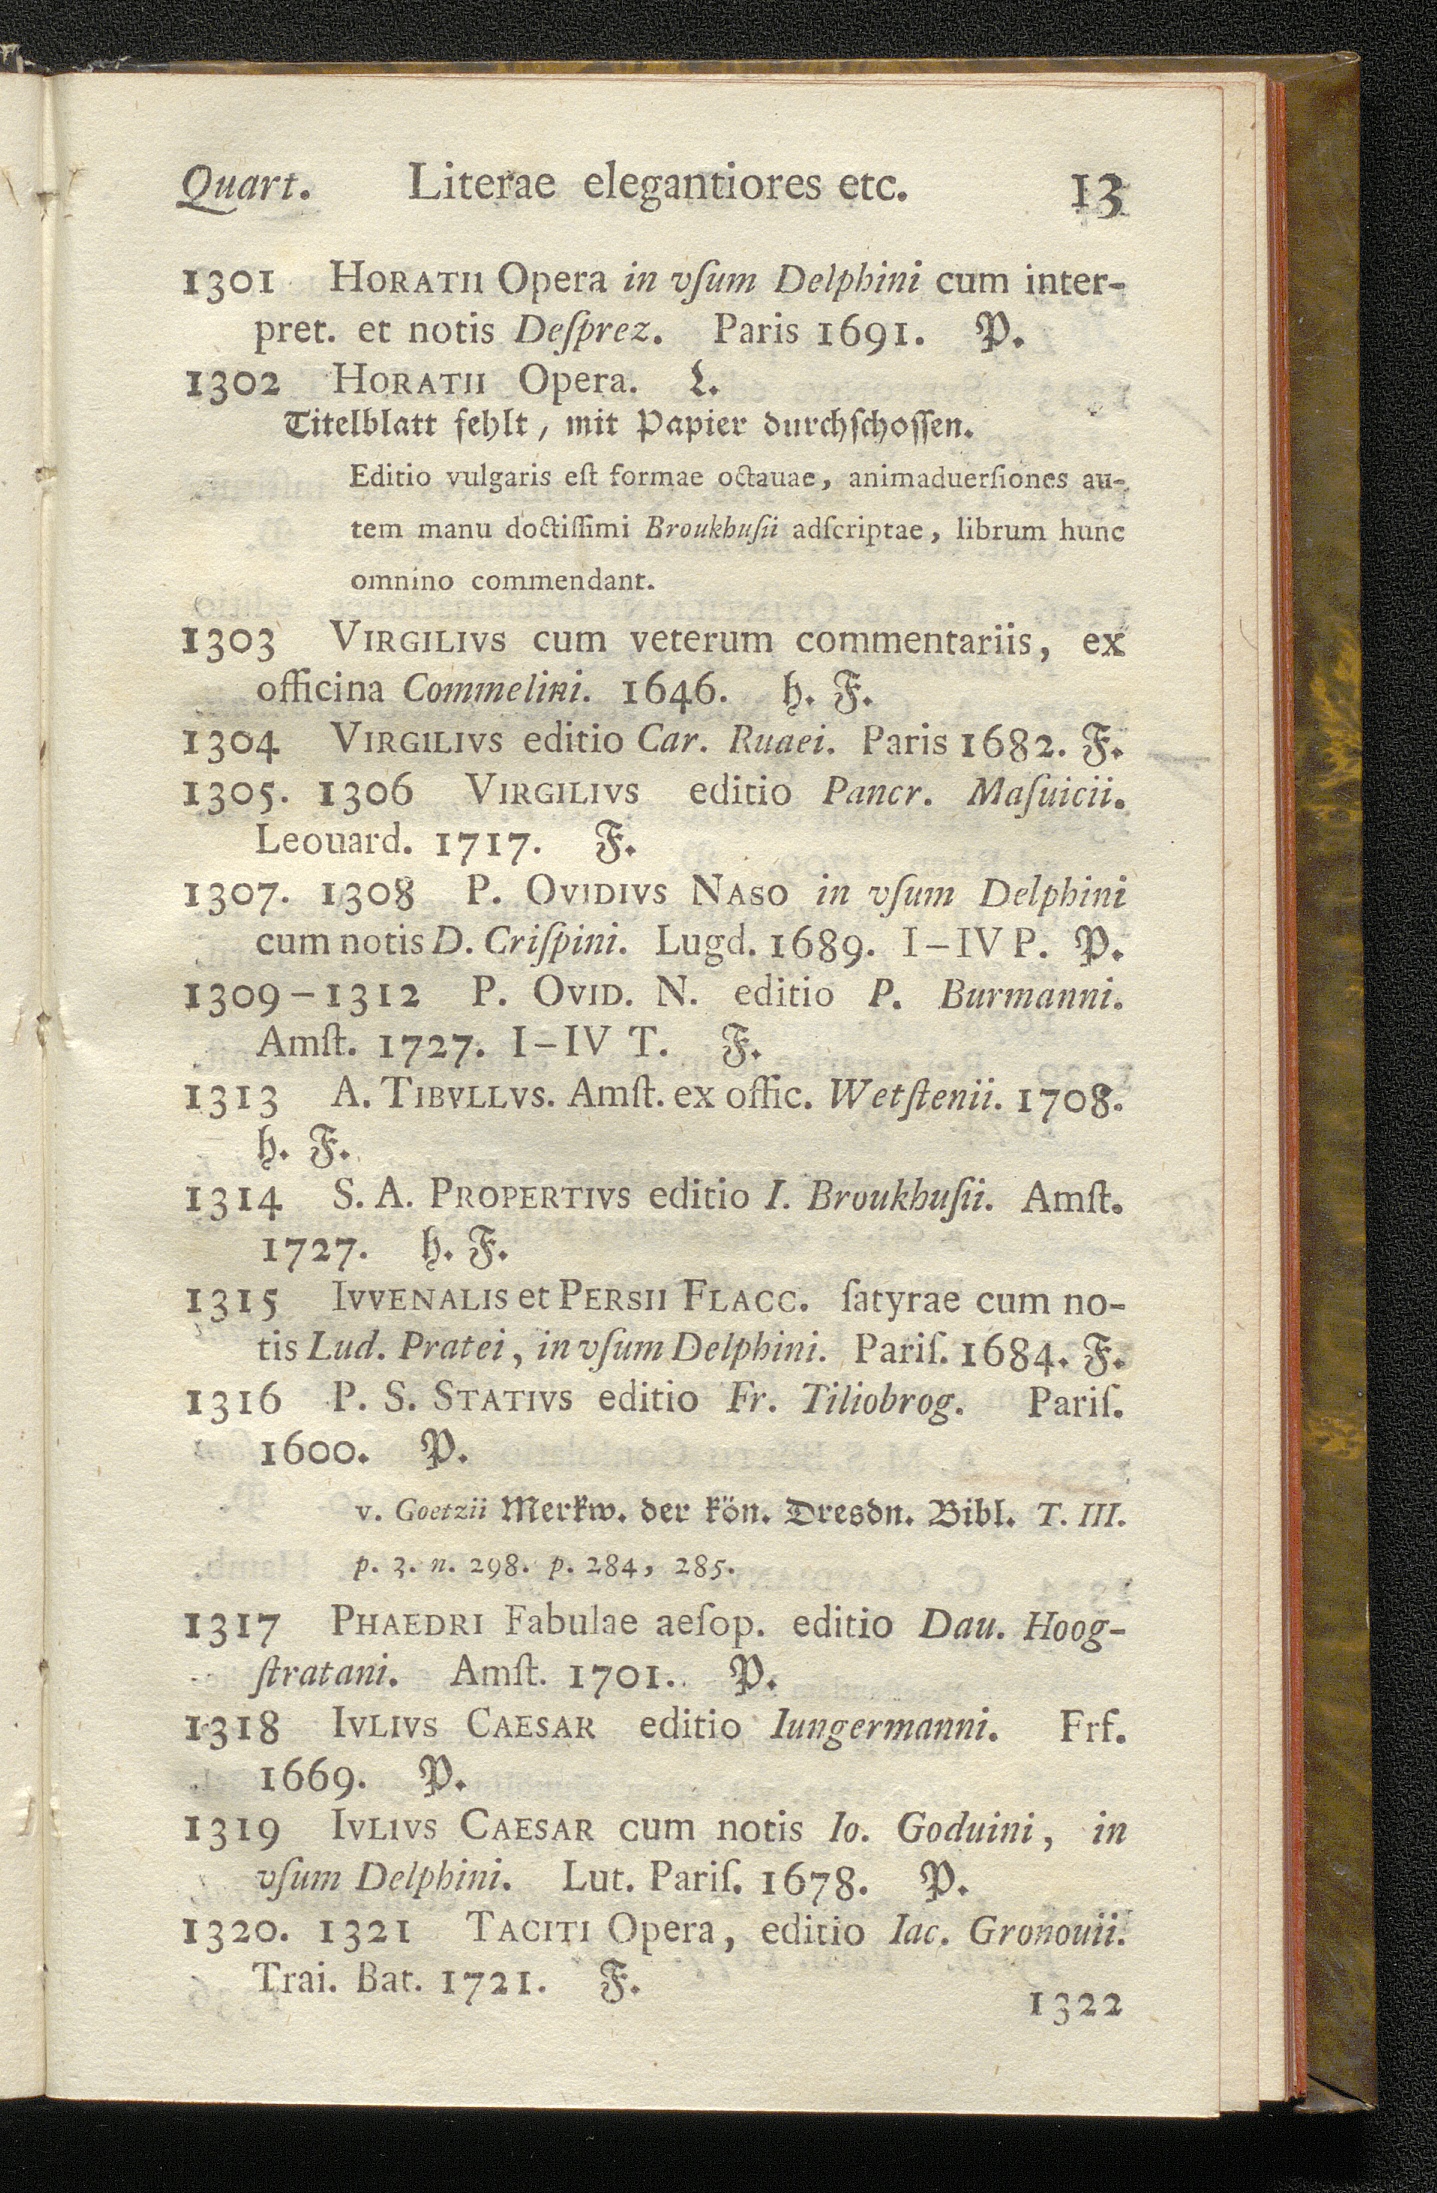 Quart. Literae elegantiores etc. 13
1301 HORATII Opera in vſum Delphini cum inter-
pret. et notis Deſprez. Paris 1691. P.
1302 HORATII Opera. L.
Titelblatt fehlt, mit Papier durchſchoſſen.
Editio vulgaris eſt formae octauae, animaduerſiones au-
tem manu doctiſſimi Broukhuſii adſcriptae, librum hunc
omnino commendant.
1303 VIRGILIVS cum veterum commentariis, ex
officina Commelini. 1646. h. F.
1304 VIRGILIVS editio Car. Ruaei. Paris 1682. F.
1305. 1306 VIRGILIVS editio Pancr. Maſuicii.
Leouard. 1717. F.
1307. 1308 P. OVIDIVS NASO in vſum Delphini
cum notis D. Criſpini. Lugd. 1689. I–IV P. P.
1309–1312 P. OVID. N. editio P. Burmanni.
Amſt. 1727. I–IV T. F.
1313 A. TIBVLLVS. Amſt. ex offic. Wetſtenii. 1708.
h. F.
1314 S. A. PROPERTIVS editio I. Broukhuſii. Amſt.
1727. h. F.
1315 IVVENALIS et PERSII FLACC. ſatyrae cum no-
tis Lud. Pratei, in vſum Delphini. Pariſ. 1684. F.
1316 P. S. STATIVS editio Fr. Tiliobrog. Pariſ.
1600. P.
v. Goetzii Merkw. der kön. Dresdn. Bibl. T. III.
p. 3. n. 298. p. 284, 285.
1317 PHAEDRI Fabulae aeſop. editio Dau. Hoog-
ſtratani. Amſt. 1701. P.
1318 IVLIVS CAESAR editio Iungermanni. Frf.
1669. P.
1319 IVLIVS CAESAR cum notis Io. Goduini, in
vſum Delphini. Lut. Pariſ. 1678. P.
1320. 1321 TACITI Opera, editio Iac. Gronouii.
Trai. Bat. 1721. F.
1322